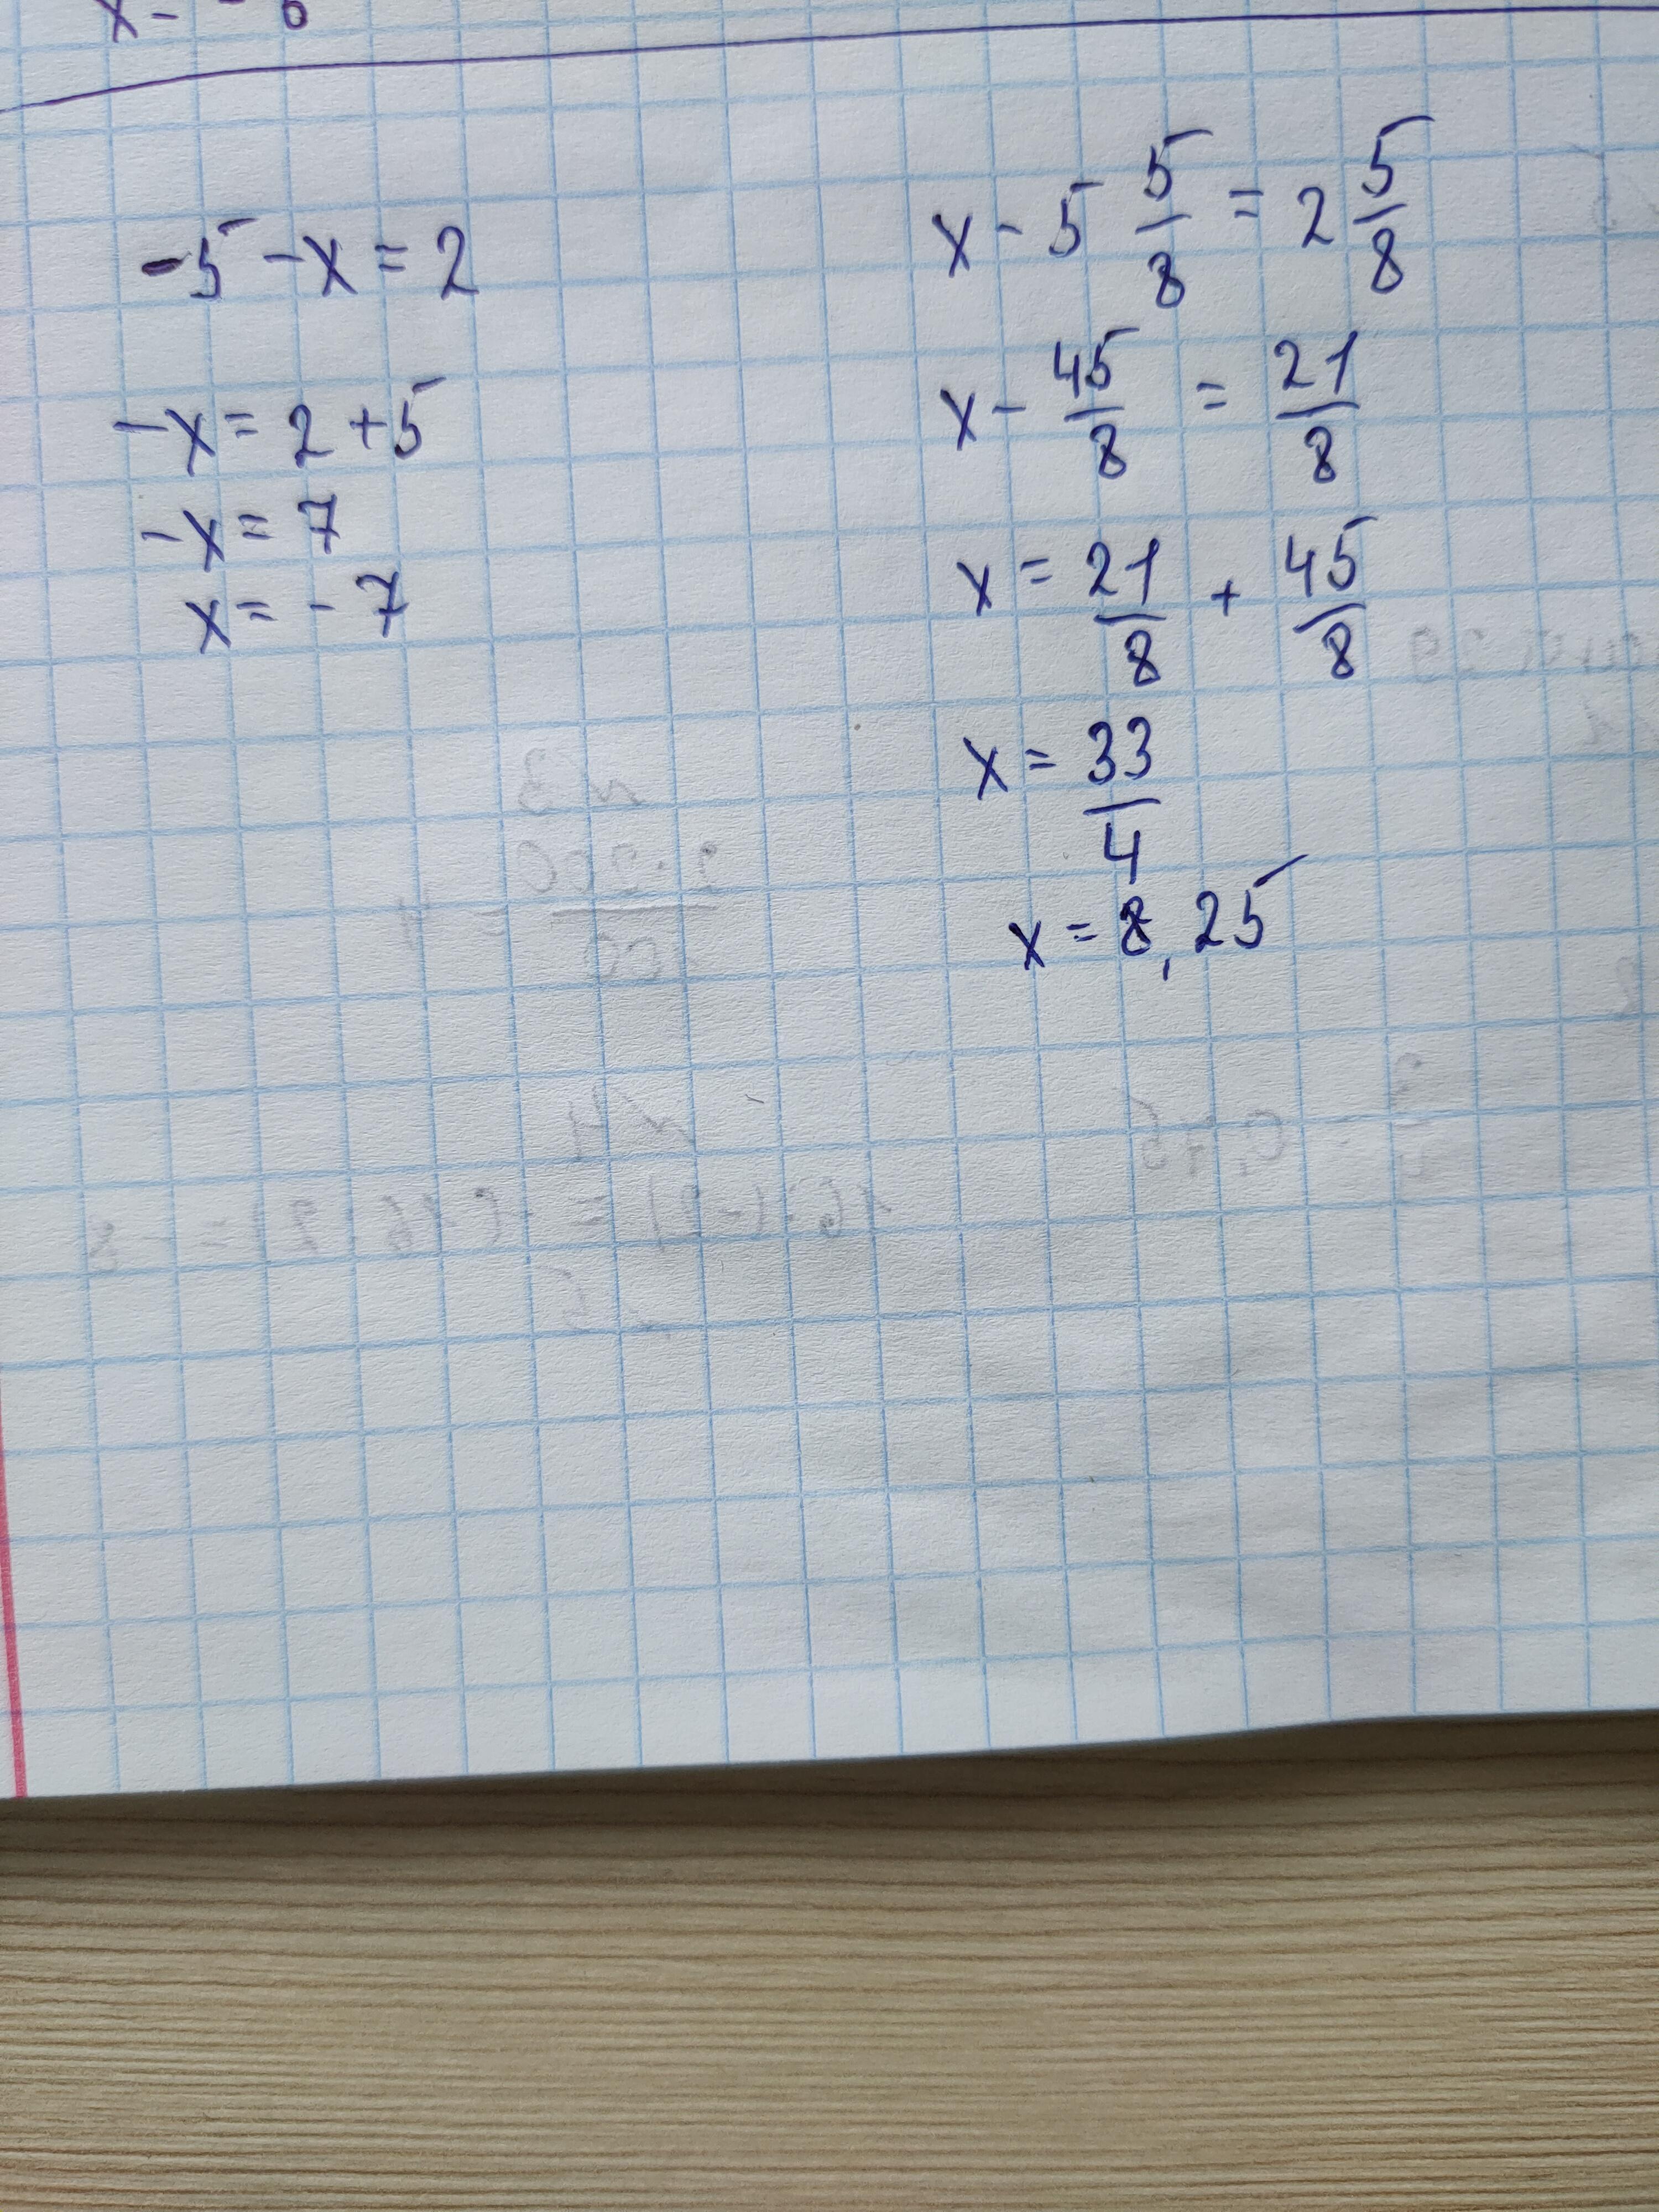 -5 - x = 2
-x = 2 + 5
-x = 7
x = - 7
x - 5 5/8 = 2 5/8
x - 45/8 = 21/8
x = 21/8 + 45/8
x = 33/4
x = 8,25